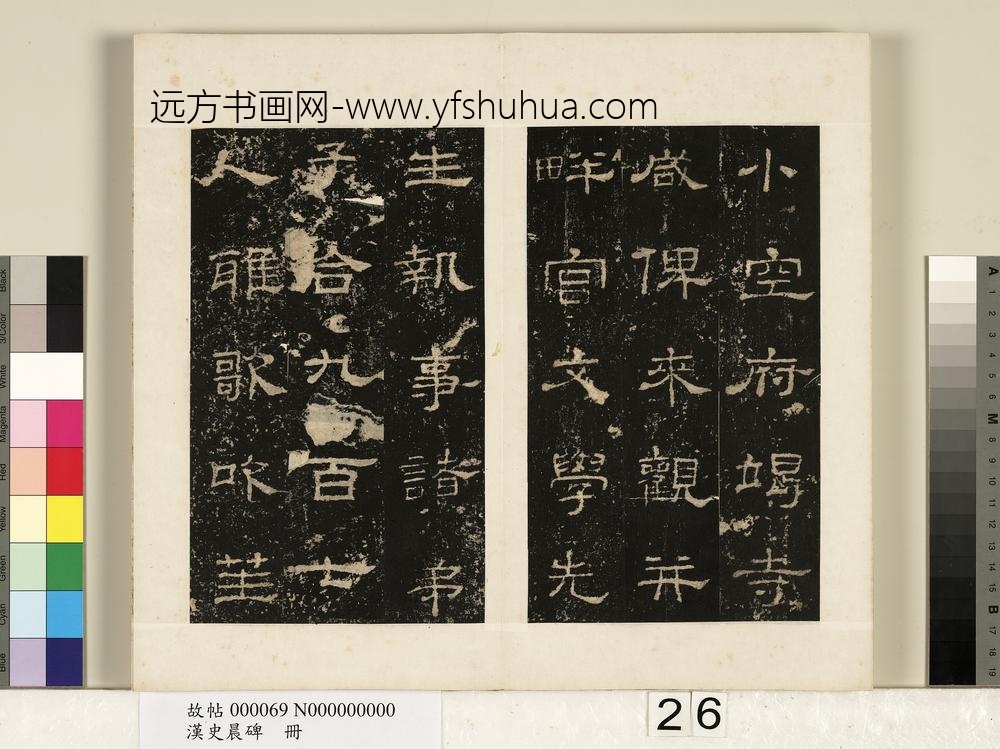 远方书画网-www.yfshuhua.com
小空府竭寺
咸俾來觀并
畔官文學先
生執事諸弟
子合九百七
人雅歌吹笙
Black
3/Color
White
Magenta
Red
Yellow
Green
Cyan
Blue
A 1 2 3 4 5 6 M 8 9 10 11 12 13 14 15 B 17 18 19
故帖 000069 N000000000
漢史晨碑 冊
26